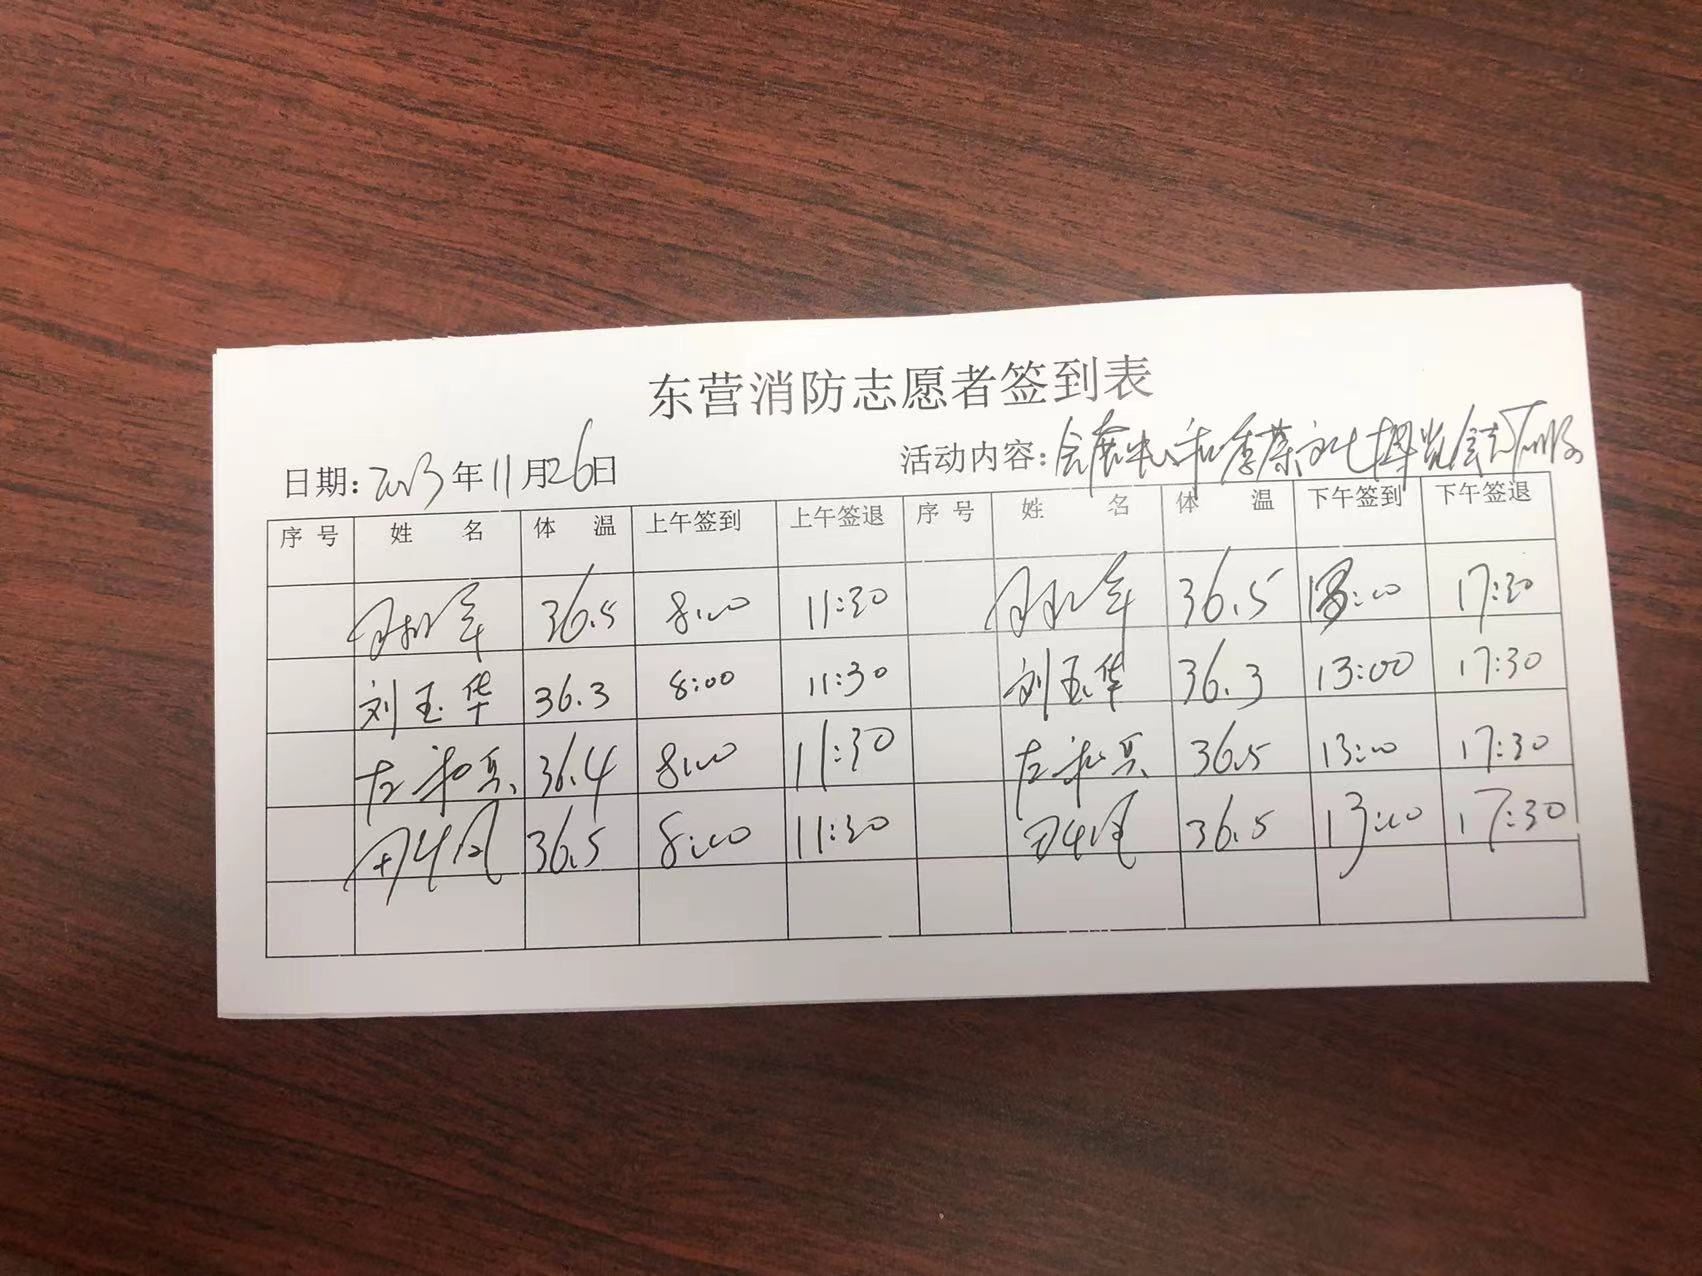 东营消防志愿者签到表
日期: 2023年11月26日 活动内容: 会展中心和季文化博览会志愿服
序号 姓名 体温 上午签到 上午签退 序号 姓名 体温 下午签到 下午签退
36.5 8:00 11:30 36.5 13:00 17:30
刘玉华 36.3 8:00 11:30 刘玉华 36.3 13:00 17:30
左和兵 36.4 8:00 11:30 左和兵 36.5 13:00 17:30
36.5 8:00 11:30 36.5 13:00 17:30